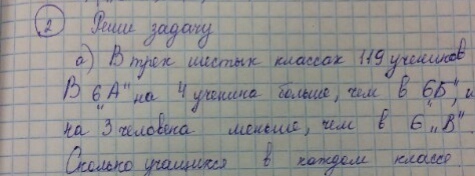 2 Реши задачу
а) В трех шестых классах 119 учеников
В 6 „А" на 4 ученика больше, чем в 6„Б", и
на 3 человека меньше, чем в 6 „В"
Сколько учащихся в каждом классе